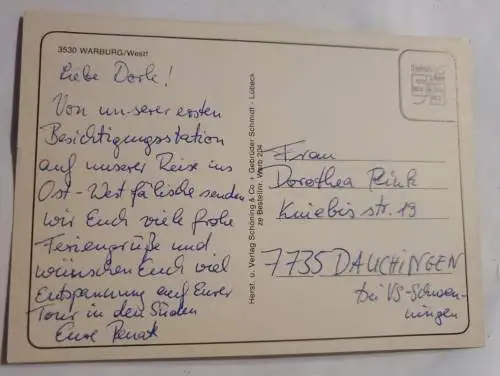 3530 WARBURG/Westf
Liebe Dorle!
Von unserer ersten
Besichtigungsstation
auf unserer Reise ins
Ost-Westfälische senden
wir Euch viele frohe
Feriengrüße und
wünschen Euch viel
Entspannung auf Eurer
Tour in den Süden
Eure Renate
Herst. u. Verlag Schöning & Co + Gebrüder Schmidt - Lübeck
ze Bestellnr. Warb 204
Frau
Dorothea Rink
Kniebisstr. 19
7735 DAUCHINGEN
bei VS-Schwen-
ningen